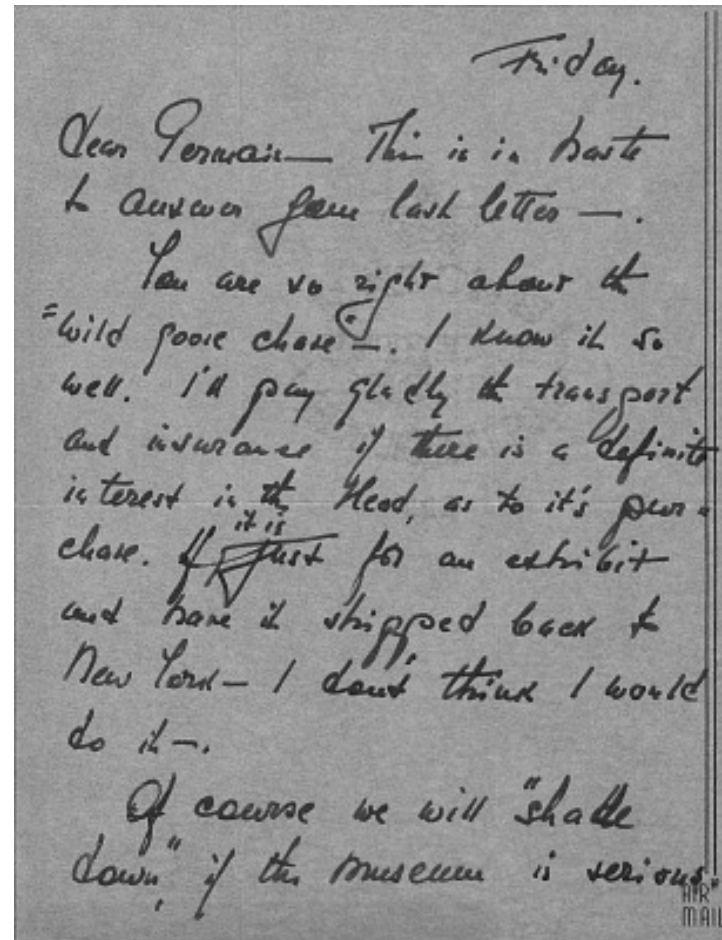 Friday.
dear Germain— This is in haste
to answer your last letter —.
You are so right about the
"wild goose chase" —. I know it so
well. I'll pay gladly the transport
and insurance if there is a definite
interest in the Head, as to it's pur-
chase. If it is just for an exhibit
and have it shipped back to
New York — I don't think I would
do it —.
Of course we will "shade
down", if the museum is serious
AIR
MAIL